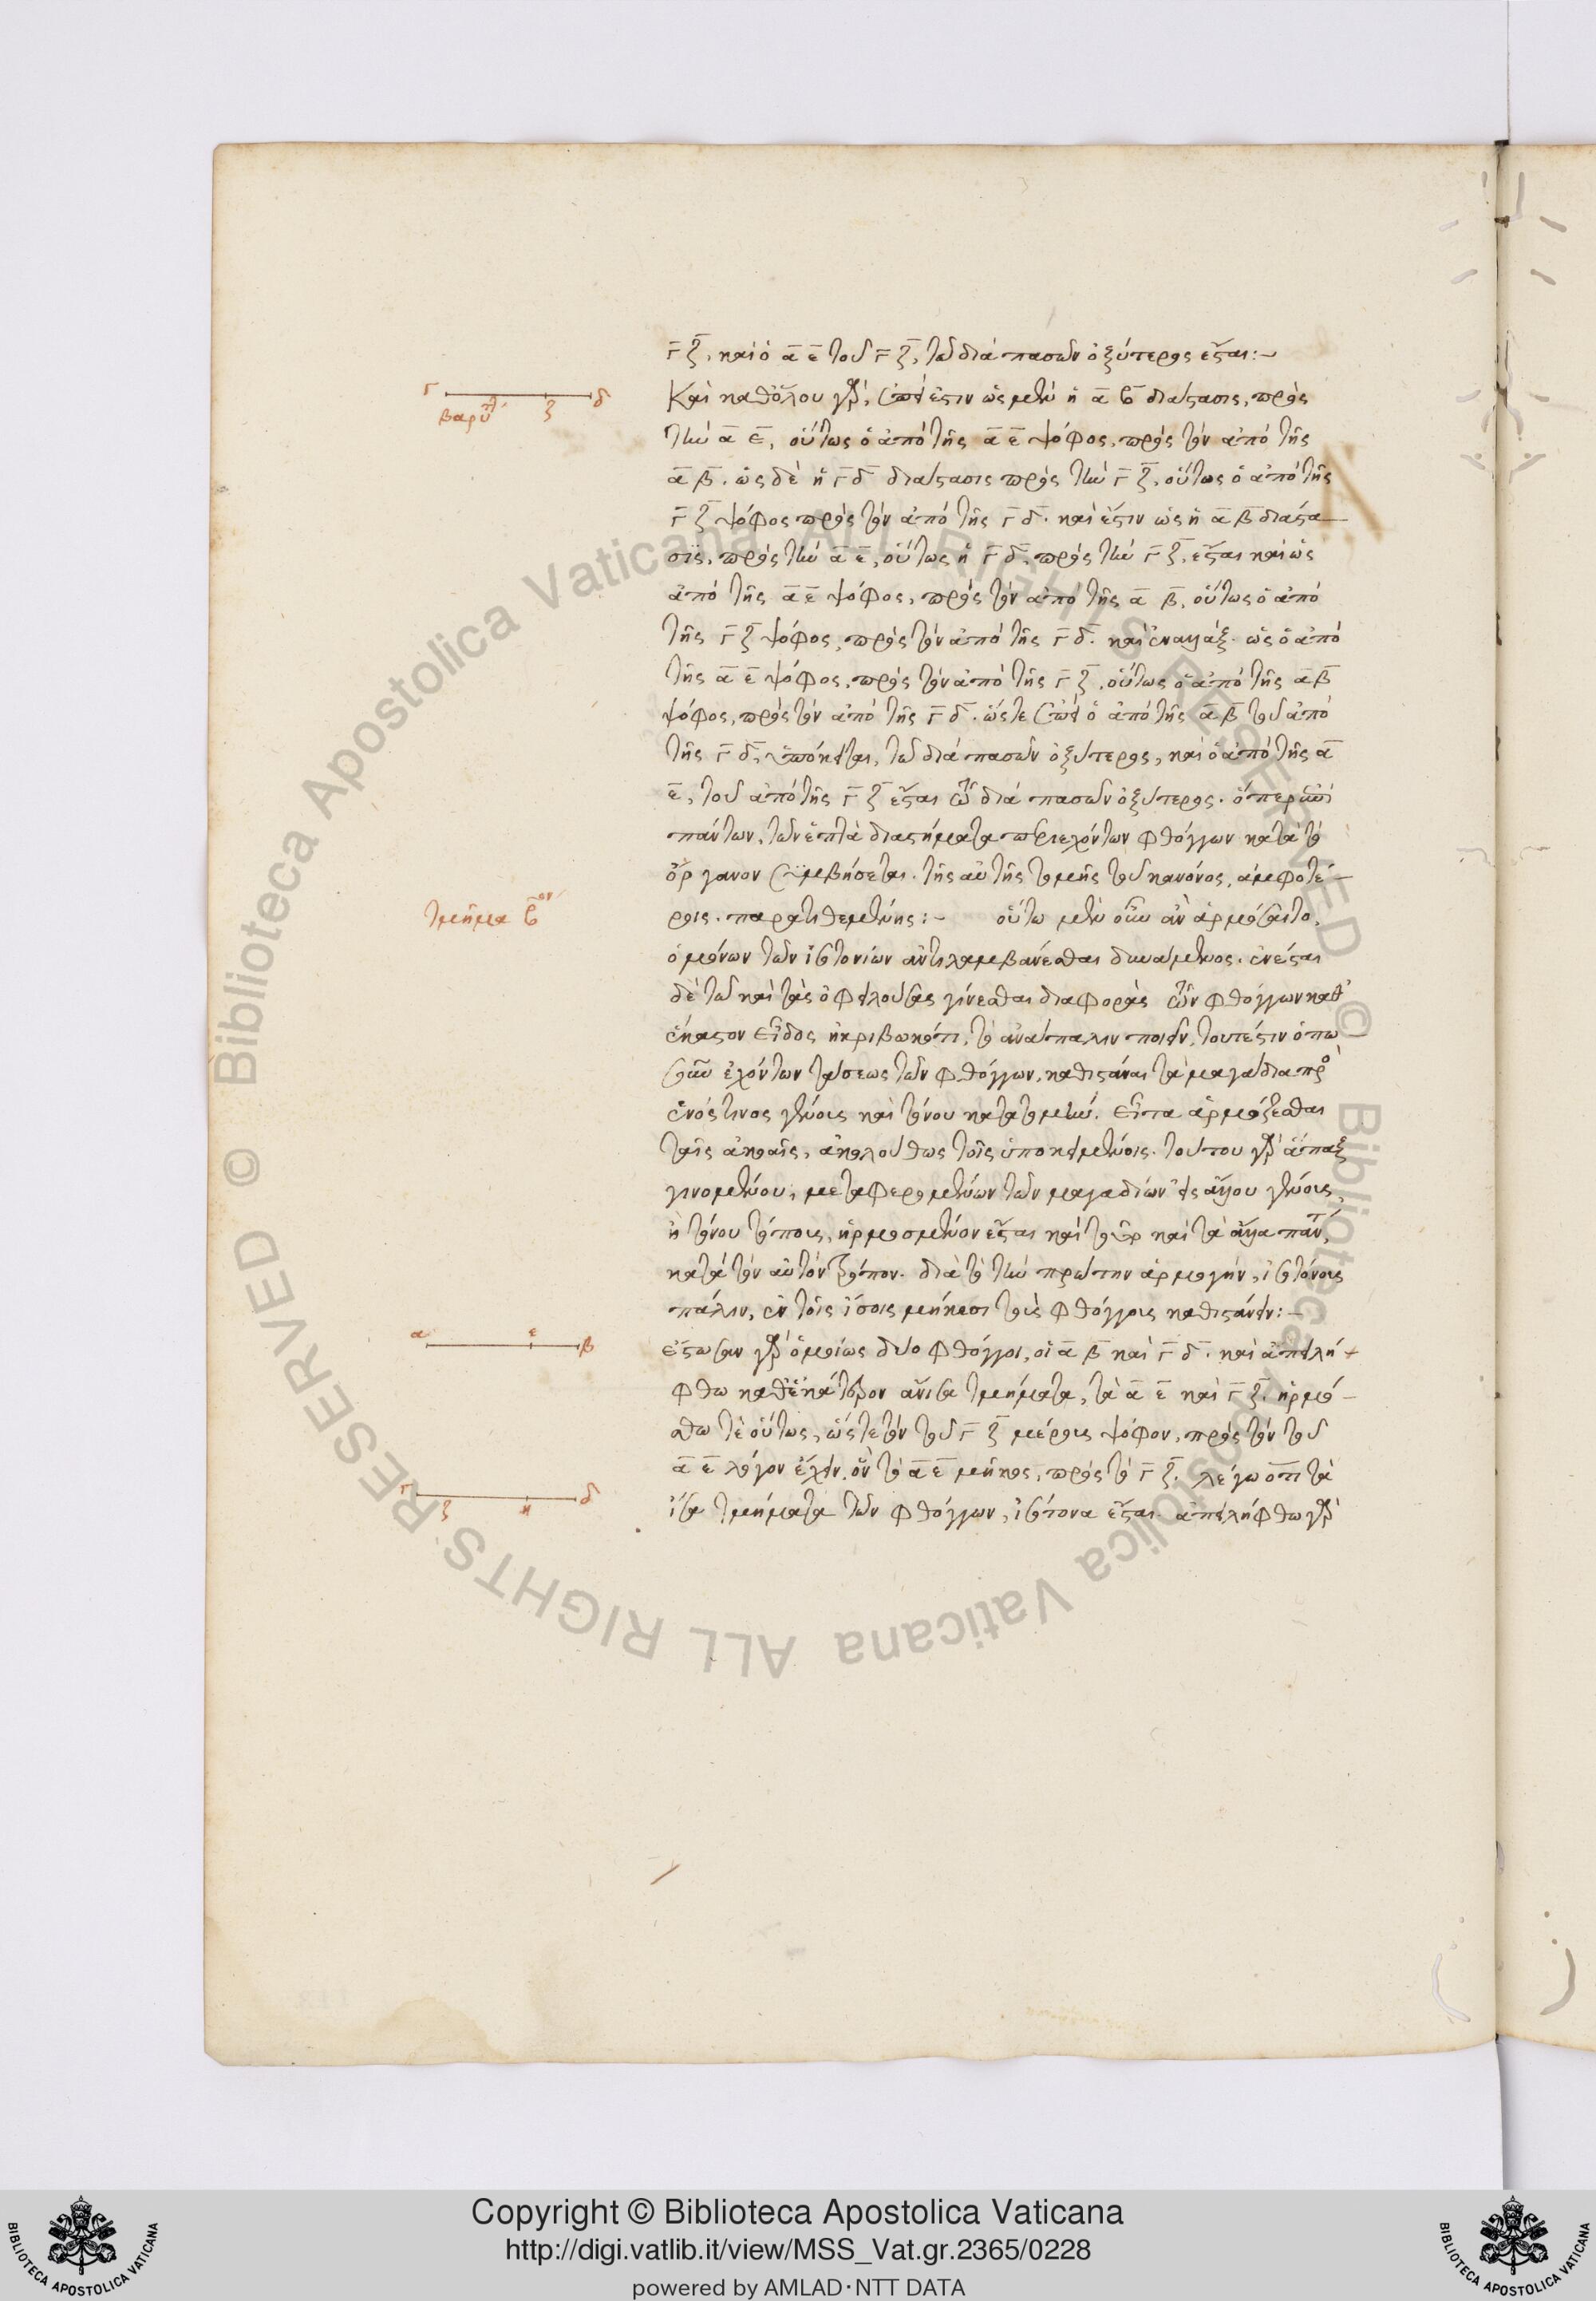 γ ζ, καὶ ὁ α ε τοῦ γ ζ, τῶ διὰ πασῶν ὀξύτερος ἔσται:~
Γ δ
βαρύ ζ
Καὶ καθόλου γὰρ, ἐστιν ὡς μὲν ἡ α β διάστασις, πρὸς
τὴν α ε, οὕτως ὁ ἀπὸ τῆς α ε ψόφος, πρὸς τὸν ἀπὸ τῆς
α β. ὡς δὲ ἡ γ δ διάστασις πρὸς τὴν γ ζ, οὕτως ὁ ἀπὸ τῆς
γ ζ ψόφος πρὸς τὸν ἀπὸ τῆς γ δ. καὶ ἔστιν ὡς ἡ α β διάστα
σις, πρὸς τὴν α ε, οὕτως ἡ γ δ, πρὸς τὴν γ ζ, ἔσται καὶ ὡς
ἀπὸ τῆς α ε ψόφος, πρὸς τὸν ἀπὸ τῆς α β, οὕτως ὁ ἀπὸ
τῆς γ ζ ψόφος, πρὸς τὸν ἀπὸ τῆς γ δ. καὶ ἐναλλάξ. ὡς ὁ ἀπὸ
τῆς α ε ψόφος, πρὸς τὸν ἀπὸ τῆς γ ζ, οὕτως ὁ ἀπὸ τῆς α β
ψόφος, πρὸς τὸν ἀπὸ τῆς γ δ. ὥστε ἐπεὶ ὁ ἀπὸ τῆς α β τοῦ ἀπὸ
τῆς γ δ, ὑπόκειται, τῶ διὰ πασῶν ὀξύτερος, καὶ ὁ ἀπὸ τῆς α
ε, τοῦ ἀπὸ τῆς γ ζ ἔσται τῶ διὰ πασῶν ὀξύτερος. ὅπερ ἐπὶ
πάντων, τῶν ἑπτὰ διαστήματα περιεχόντων φθόγγων κατὰ τὸ
ὄργανον συμβήσεται. τῆς αὐτῆς τομῆς τοῦ κανόνος, ἀμφοτέ
τμῆμα β ον
ροις παρατιθεμένης:~ οὕτω μὲν οὖν ἂν ἁρμόσαιτο,
ὁ μόνων τῶν ἰσοτονιῶν ἀντιλαμβάνεσθαι δυνάμενος. ἐνέσται
δὲ τῶ καὶ τὰς ὀφειλούσας γίνεσθαι διαφορὰς τῶν φθόγγων καθ'
ἕκαστον εἶδος ἠκριβωκότι, τὸ ἀνάπαλιν ποιεῖν, τουτέστιν ὁπω
σοῦν ἐχόντων τάσεως τῶν φθόγγων, καθιστάναι τὰ μαγάδια πρὸ
ἑνός τινος γένους καὶ τόνου κατατομήν. εἶτα ἁρμόζεσθαι
ταῖς ἀκοαῖς, ἀκολούθως τοῖς ὑποκειμένοις. τούτου γὰρ ἅπαξ
γινομένου, μεταφερομένων τῶν μαγαδίων εἰς ἄλλου γένους,
ἢ τόνου τόπους, ἡρμοσμένον ἔσται καὶ τοῦτο καὶ τὰ ἄλλα πάντ,
κατὰ τὸν αὐτὸν τρόπον. διὰ τὸ τὴν πρώτην ἁρμογὴν, ἰσοτόνους
πάλιν, ἐν τοῖς ἴσοις μήκεσι τοὺς φθόγγους καθιστάνειν:~
α ε β
ἔστωσαν γὰρ ὁμοίως δύο φθόγγοι, οἱ α β καὶ γ δ. καὶ ἀπειλή
φθω καθ' ἑκάτερον ἄνισα τμήματα, τὰ α ε καὶ γ ζ. ἡρμό
σθω τὲ οὕτως, ὥστε τὸν τοῦ γ ζ μέρους ψόφον, πρὸς τὸν τοῦ
α ε λόγον ἔχειν, ὃν τὸ α ε μῆκος, πρὸς τὸ γ ζ. λέγω ὅτι τὰ
Γ ζ η δ
ἴσα τμήματα τῶν φθόγγων, ἰσότονα ἔσται. ἀπειλήφθω γὰρ
© Biblioteca Apostolica Vaticana ALL RIGHTS RESERVED
© Biblioteca Apostolica Vaticana ALL RIGHTS RESERVED
Copyright © Biblioteca Apostolica Vaticana
http://digi.vatlib.it/view/MSS_Vat.gr.2365/0228
powered by AMLAD·NTT DATA
BIBLIOTECA APOSTOLICA VATICANA
BIBLIOTECA APOSTOLICA VATICANA